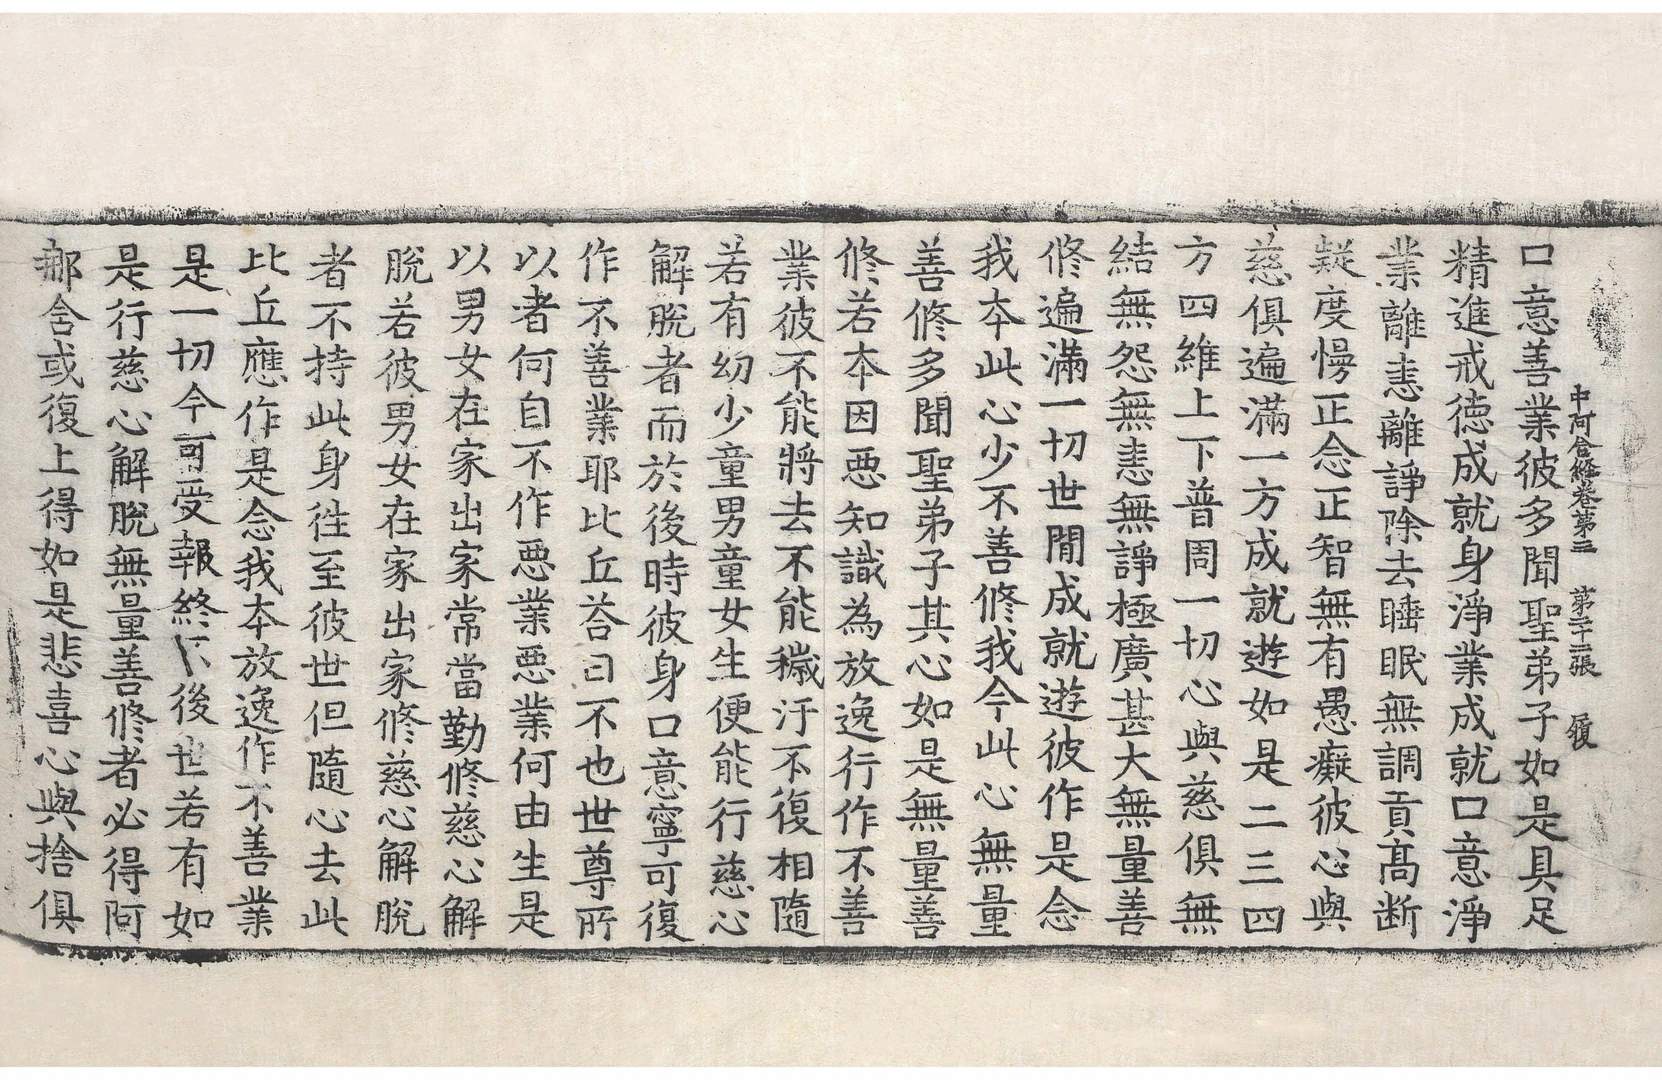 中阿含經卷第三　第二十二張　履
口意善業彼多聞聖弟子如是具足
精進戒德成就身淨業成就口意淨
業離恚離諍除去睡眠無調貢髙断
疑度慢正念正智無有愚癡彼心與
慈俱遍滿一方成就遊如是二三四
方四維上下普周一切心與慈俱無
結無怨無恚無諍極廣甚大無量善
修遍滿一切世間成就遊彼作是念
我夲此心少不善修我今此心無量
善修多聞聖弟子其心如是無量善
修若本因惡知識為放逸行作不善
業彼不能將去不能穢汙不復相隨
若有幼少童男童女生便能行慈心
解脫者而於後時彼身口意寧可復
作不善業耶比丘荅曰不也世尊所
以者何自不作惡業惡業何由生是
以男女在家出家常當勤修慈心解
脫若彼男女在家出家修慈心解脫
者不持此身徃至彼世但隨心去此
比丘應作是念我夲放逸作不善業
是一切今可受報終不後世若有如
是行慈心解脫無量善修者必得阿
那含或復上得如是悲喜心與捨俱